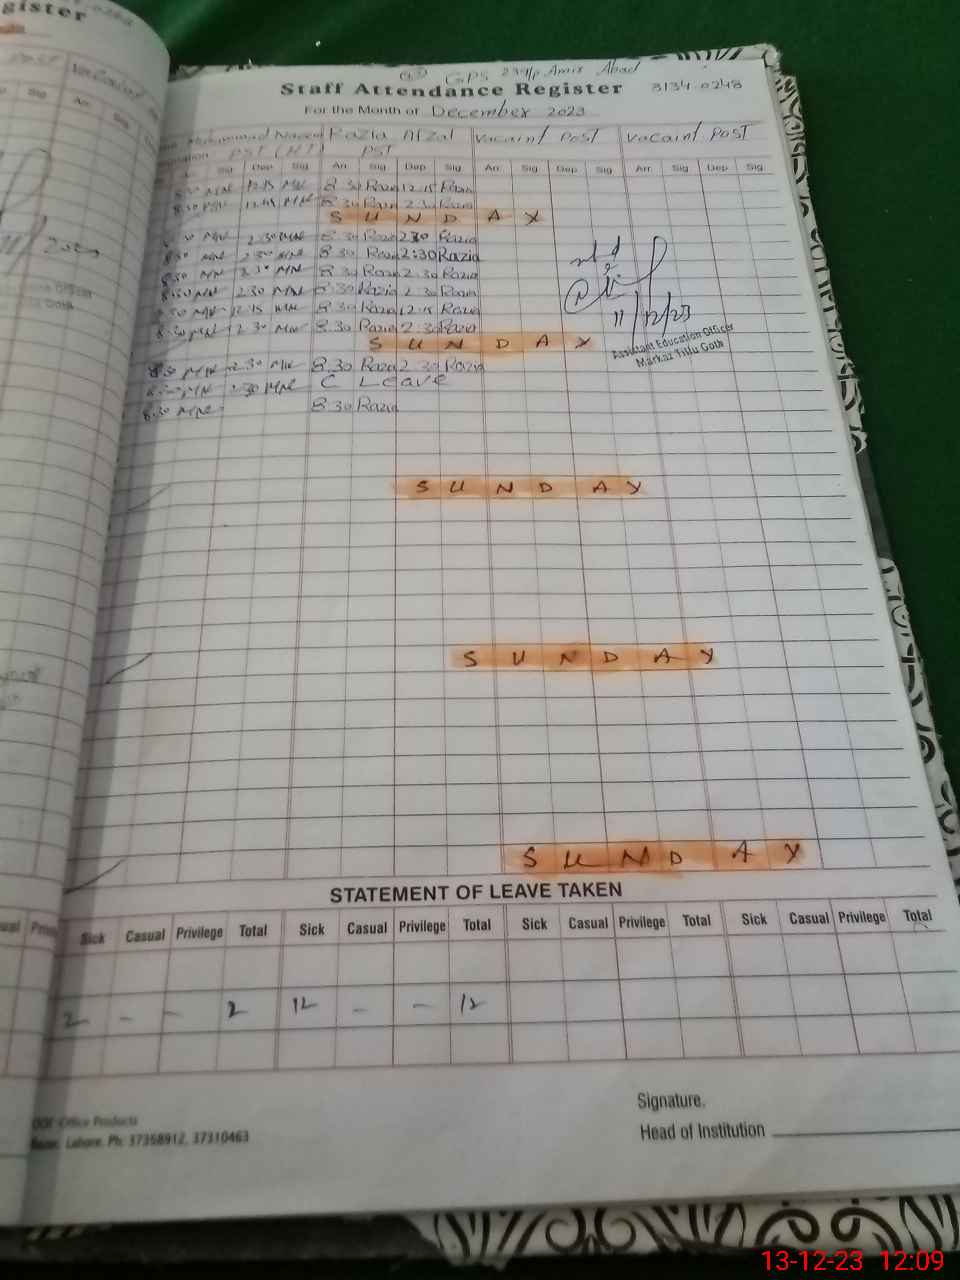 GPS 239/P Amir Abad
Staff Attendance Register 31340248
For the Month of December 2023
Muhammad Naeem Razia Afzal Vacaint Post Vacaint Post
PST (HT) PST
Sig Dep Sig Arr Sig Dep Sig Arr Sig Dep Sig Arr Sig Dep Sig
8:30 MN 12:15 MN 8:30 Razia 12:15 Razia
8:30 MN MN 8:30 Razia 2:30 Razia
S U N D A Y
8:30 MN 2:30 MN 8:30 Razia 2:30 Razia
8:30 MN 2:30 MN 8:30 Razia 2:30 Razia
8:30 MN 2:30 MN 8:30 Razia 2:30 Razia
8:30 MN 2:30 MN 8:30 Razia 2:30 Razia
8:30 MN 12:15 MN 8:30 Razia 12:15 Razia
8:30 MN 2:30 MN 8:30 Razia 2:30 Razia
11/12/23
Assistant Education Officer
Markaz Tillu Goth
S U N D A Y
8:30 MN 2:30 MN 8:30 Razia 2:30 Razia
8:30 MN 2:30 MN C Leave
8:30 MN 8:30 Razia
S U N D A Y
S U N D A Y
S U N D A Y
STATEMENT OF LEAVE TAKEN
Sick Casual Privilege Total Sick Casual Privilege Total Sick Casual Privilege Total Sick Casual Privilege Total
2 - - 2 12 - - 12
Signature.
Head of Institution
Office Products
Lahore. Ph: 37358912, 37310463
13-12-23 12:09